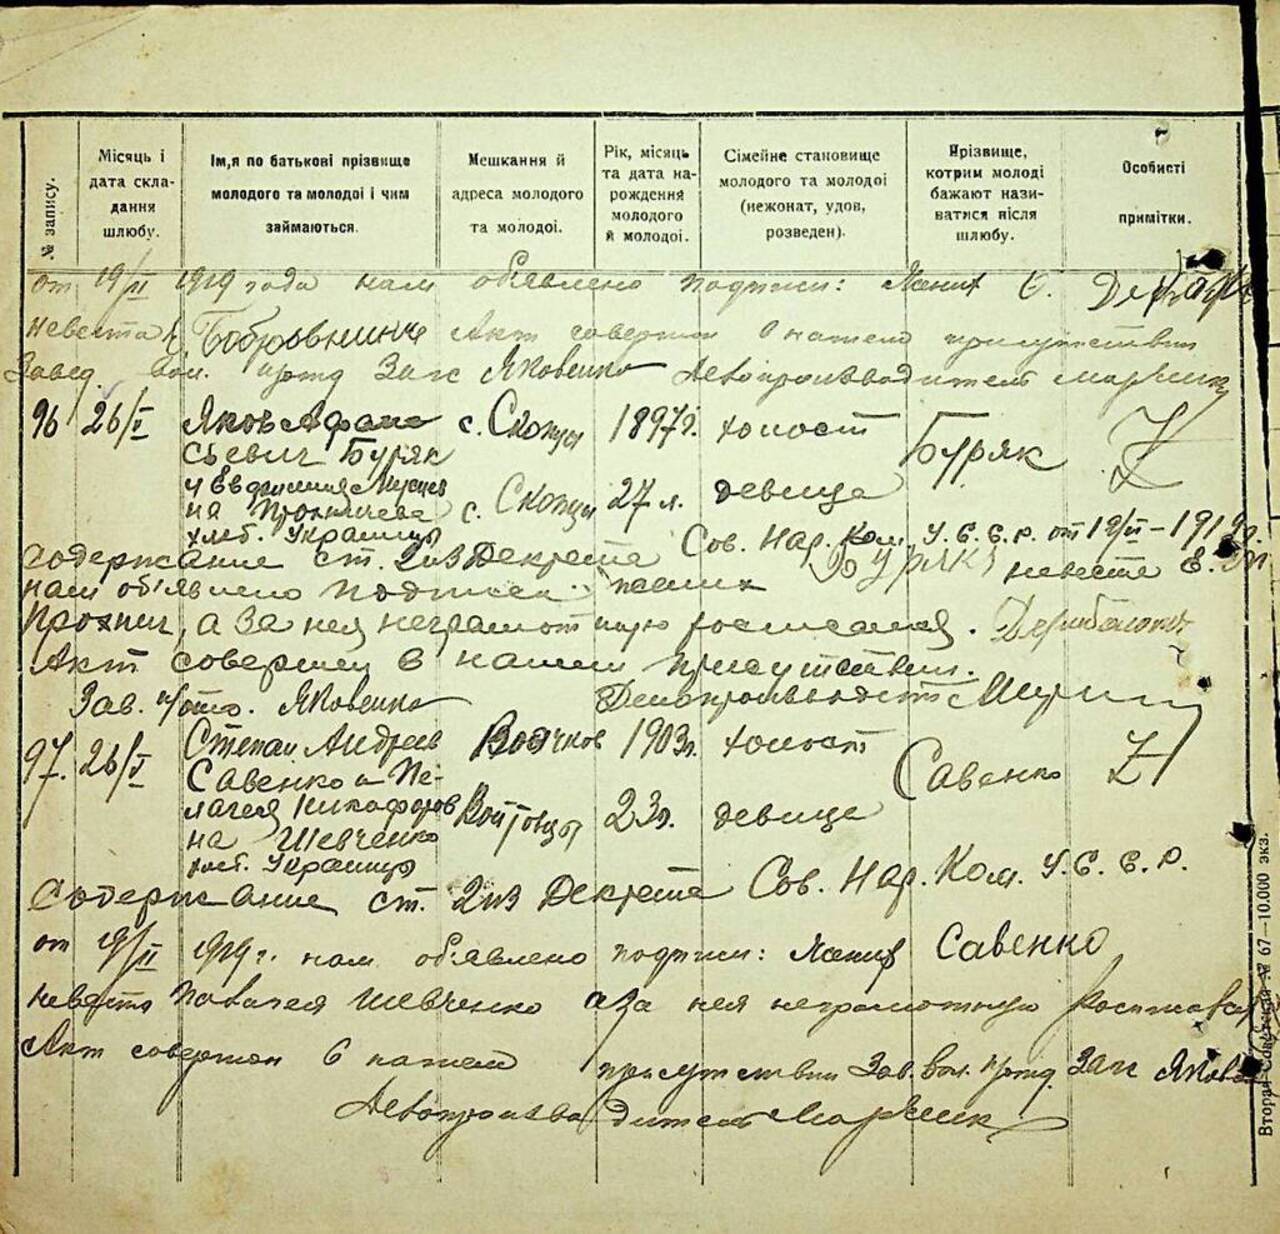 № запису.
Місяць і дата скла- дання шлюбу.
Ім,я по батькові прізвище молодого та молодоі і чим займаються.
Мешкання й адреса молодого та молодоі.
Рік, місяць та дата на- рождення молодого й молодоі.
Сімейне становище молодого та молодоі (нежонат, удов, розведен).
Прізвище, котрим молоді бажают нази- ватися після шлюбу.
Особисті примітки.
от 19/II 1919 года нам объявлено подписи: Жених С.
невеста Бобровницка Акт совершен в нашем присутствии
Завед. вол. п/отд Загс Яковенко Делопроизводитель
96 26/V Яков Афана с. Скопцы 1897г. холост Буряк
сьевич Буряк
и Ефросиния с. Скопцы 27 л. девица
на
хлеб. Украинцы
содержание ст. 2 из Декрета Сов. Нар. Ком. У.С.С.Р. от 19/II – 1919г.
нам объявлено подписи: жених Буряк невеста Е.
а за нея неграмотную росписался.
Акт совершен в нашем присутствии.
Зав. п/отд. Яковенко Делопроизводит
97. 26/V Степан Андреев 1903г. холост Савенко
Савенко и Пе-
лагея Никифоров Войтовцы 23л. девица
на Шевченко
хлеб. Украинцы
Содержание ст. 2 из Декрета Сов. Нар. Ком. У.С.С.Р.
от 19/II 1919г. нам объявлено подписи: Жених Савенко
невеста Шевченко а за нея неграмотную
Акт совершен в нашем присутствии Зав. вол. п/отд. Загс
Делопроизводитель
№ 67—10.000 экз.